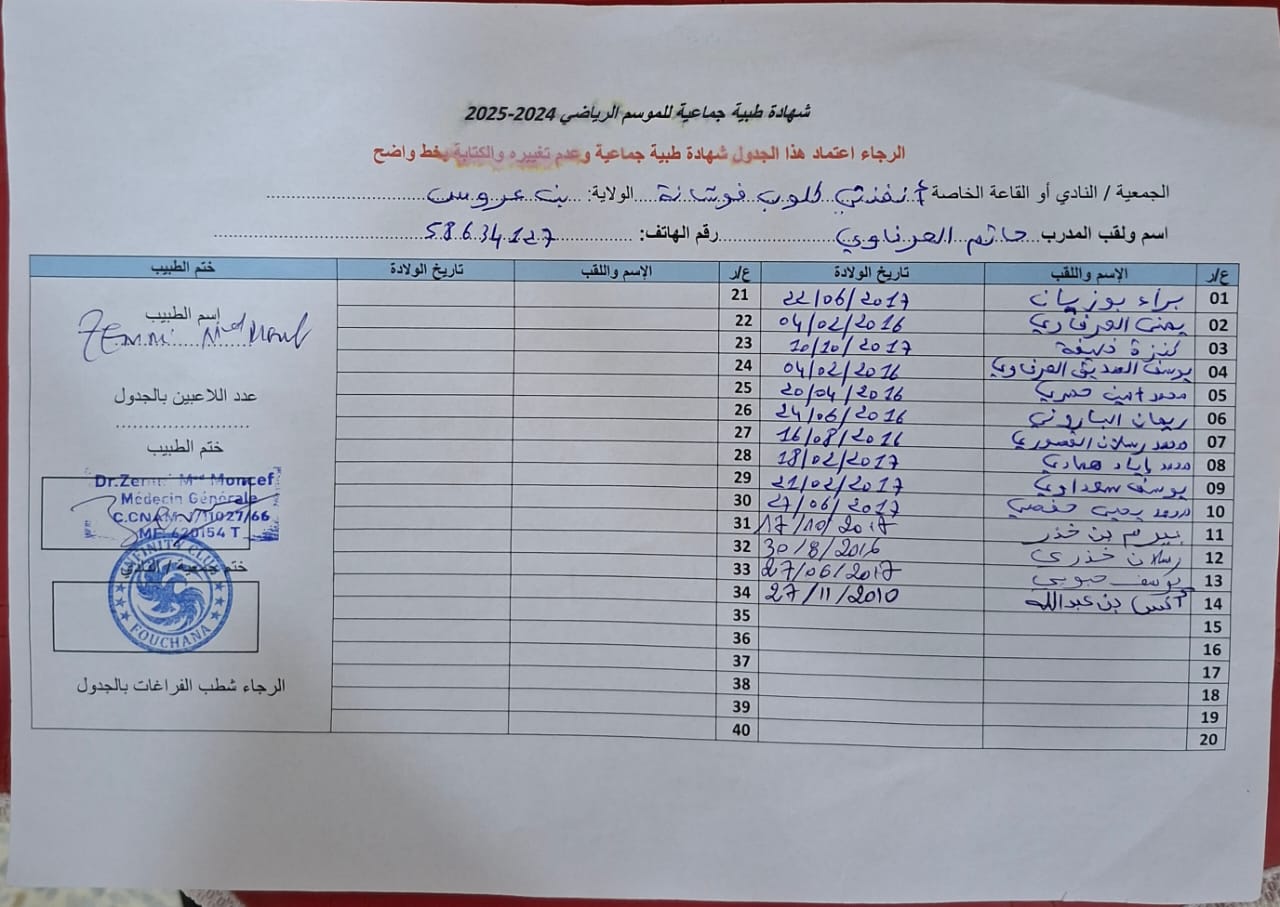 شهادة طبية جماعية للموسم الرياضي 2024-2025
الرجاء اعتماد هذا الجدول شهادة طبية جماعية وعدم تغييره والكتابة بخط واضح
الجمعية / النادي أو القاعة الخاصة أنفنتي كلوب فوشانة الولاية: بن عروس
اسم ولقب المدرب حاتم العرفاوي رقم الهاتف: 58634127
ع/ر الإسم واللقب تاريخ الولادة ع/ر الإسم واللقب تاريخ الولادة ختم الطبيب
01 براء بوزيان 22/06/2017 21
02 يمنى العرفاوي 04/02/2016 22
03 كنزة خليفة 10/10/2017 23
04 يوسف الصديق العرفاوي 04/02/2016 24
05 محمد أمين 20/04/2016 25
06 ريهان الباروني 24/06/2016 26
07 محمد رسلان القصوري 16/08/2016 27
08 محمد إياد همادي 18/02/2017 28
09 يوسف سعداوي 21/02/2017 29
10 محمد يحيى حفصي 27/06/2017 30
11 بيرم بن خذر 17/10/2017 31
12 رسلان خذري 30/8/2016 32
13 يوسف حبوبي 27/06/2017 33
14 أنس بن عبدالله 27/11/2010 34
15 35
16 36
17 37
18 38
19 39
20 40
إسم الطبيب
Zemni Md
عدد اللاعبين بالجدول
ختم الطبيب
Dr.Zemni Med Moncef
Médecin Générale
C.CNAM: 1/11027/66
MF: 620154 T
ختم جمعية / النادي
INFINITY CLUB
FOUCHANA
الرجاء شطب الفراغات بالجدول